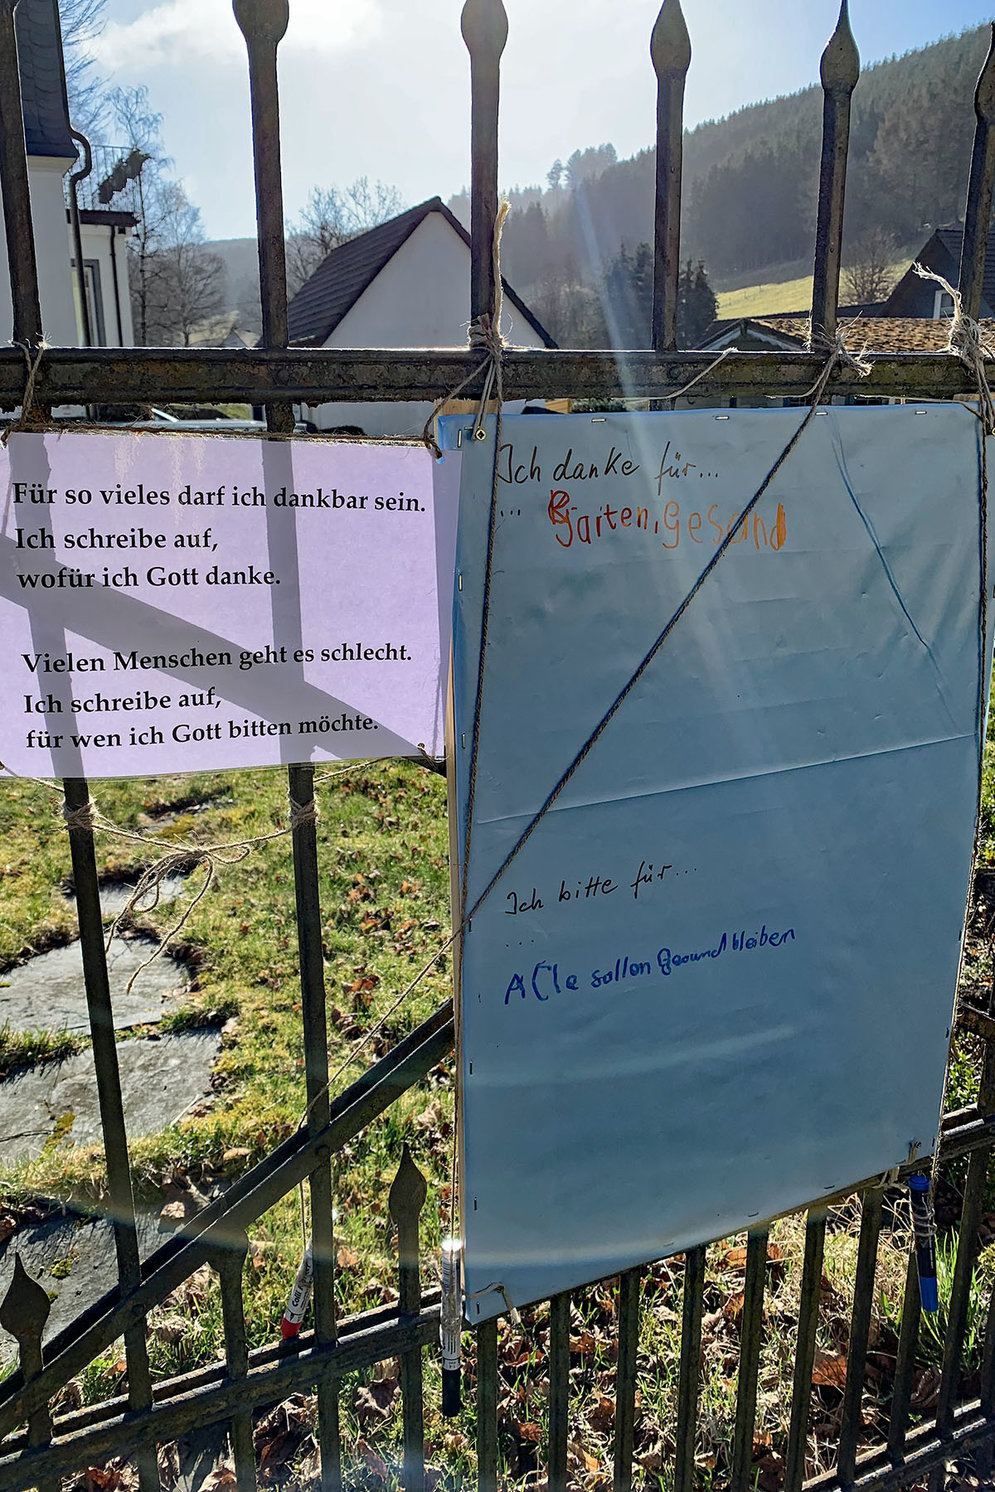 Für so vieles darf ich dankbar sein.
Ich schreibe auf,
wofür ich Gott danke.
Vielen Menschen geht es schlecht.
Ich schreibe auf,
für wen ich Gott bitten möchte.
Ich danke für...
... Garten, Gesund
Ich bitte für...
...
Alle sollen Gesund bleiben